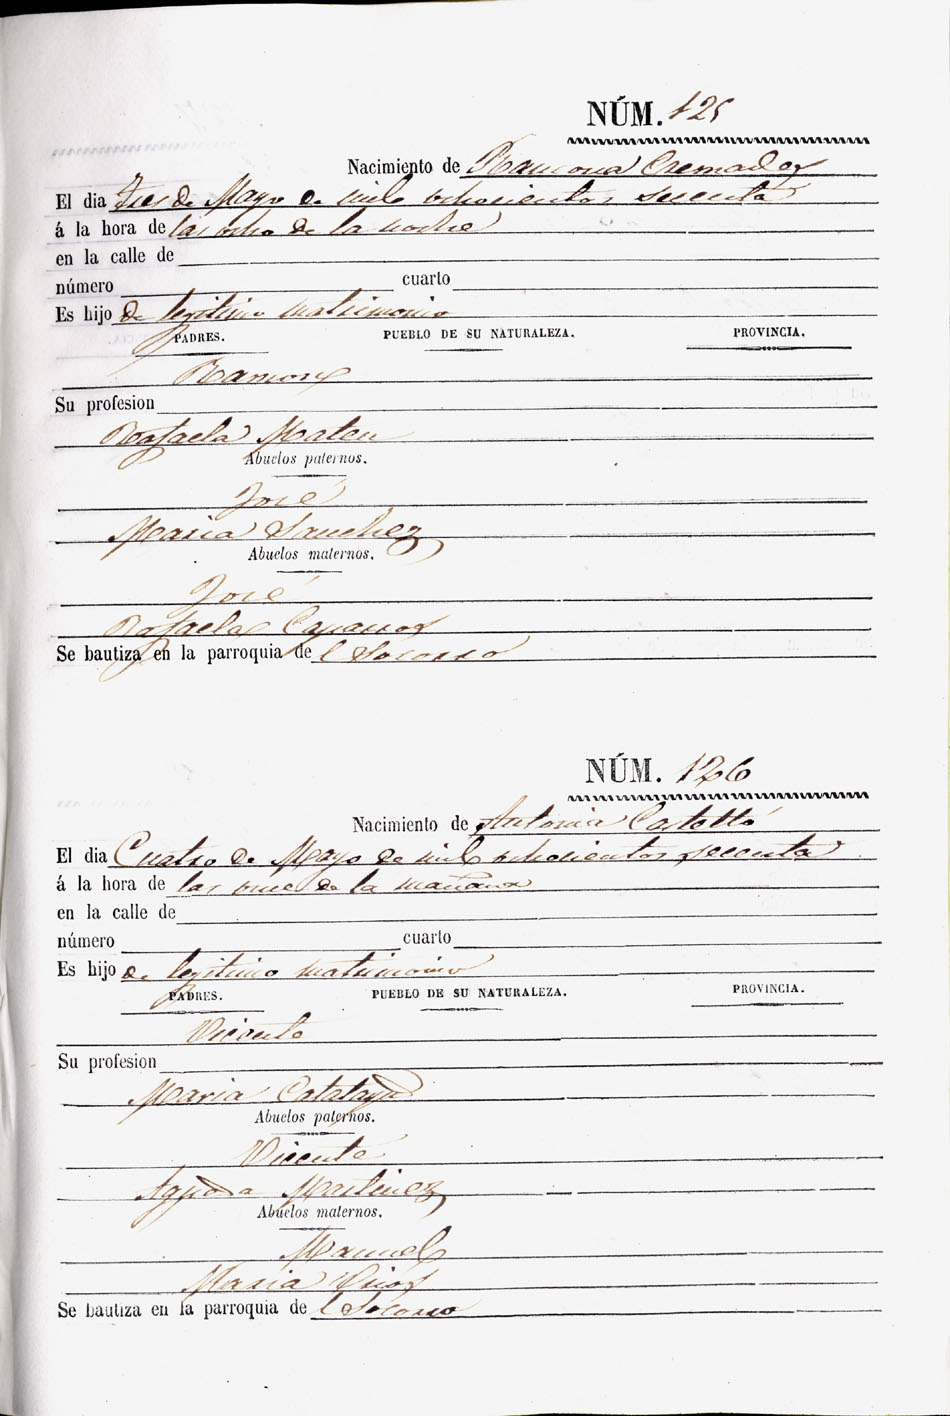 NÚM. 125
Nacimiento de Ramona Cremades
El dia Tres de Mayo de mil ochocientos sesenta
á la hora de las ocho de la noche
en la calle de
número cuarto
Es hijo de legitimo matrimonio
PADRES. PUEBLO DE SU NATURALEZA. PROVINCIA.
Ramon
Su profesion
Rafaela Mateu
Abuelos paternos.
José
Maria Sanchez
Abuelos maternos.
José
Rafaela
Se bautiza en la parroquia de l Socorro
NÚM. 126
Nacimiento de Antonia Castelló
El dia Cuatro de Mayo de mil ochocientos sesenta
á la hora de las once de la mañana
en la calle de
número cuarto
Es hijo de legitimo matrimonio
PADRES. PUEBLO DE SU NATURALEZA. PROVINCIA.
Vicente
Su profesion
Maria Catalayud
Abuelos paternos.
Vicente
Agueda Martinez
Abuelos maternos.
Manuel
Maria
Se bautiza en la parroquia de l Socorro